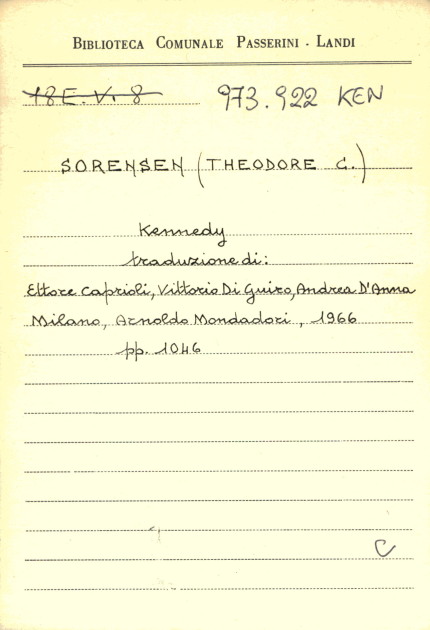 BIBLIOTECA COMUNALE PASSERINI - LANDI
18E.V.8 973.922 KEN
SORENSEN (THEODORE C.)
Kennedy
traduzione di:
Ettore Caprioli, Vittorio Di Giuro, Andrea D'Anna
Milano, Arnoldo Mondadori, 1966
pp. 1046
C